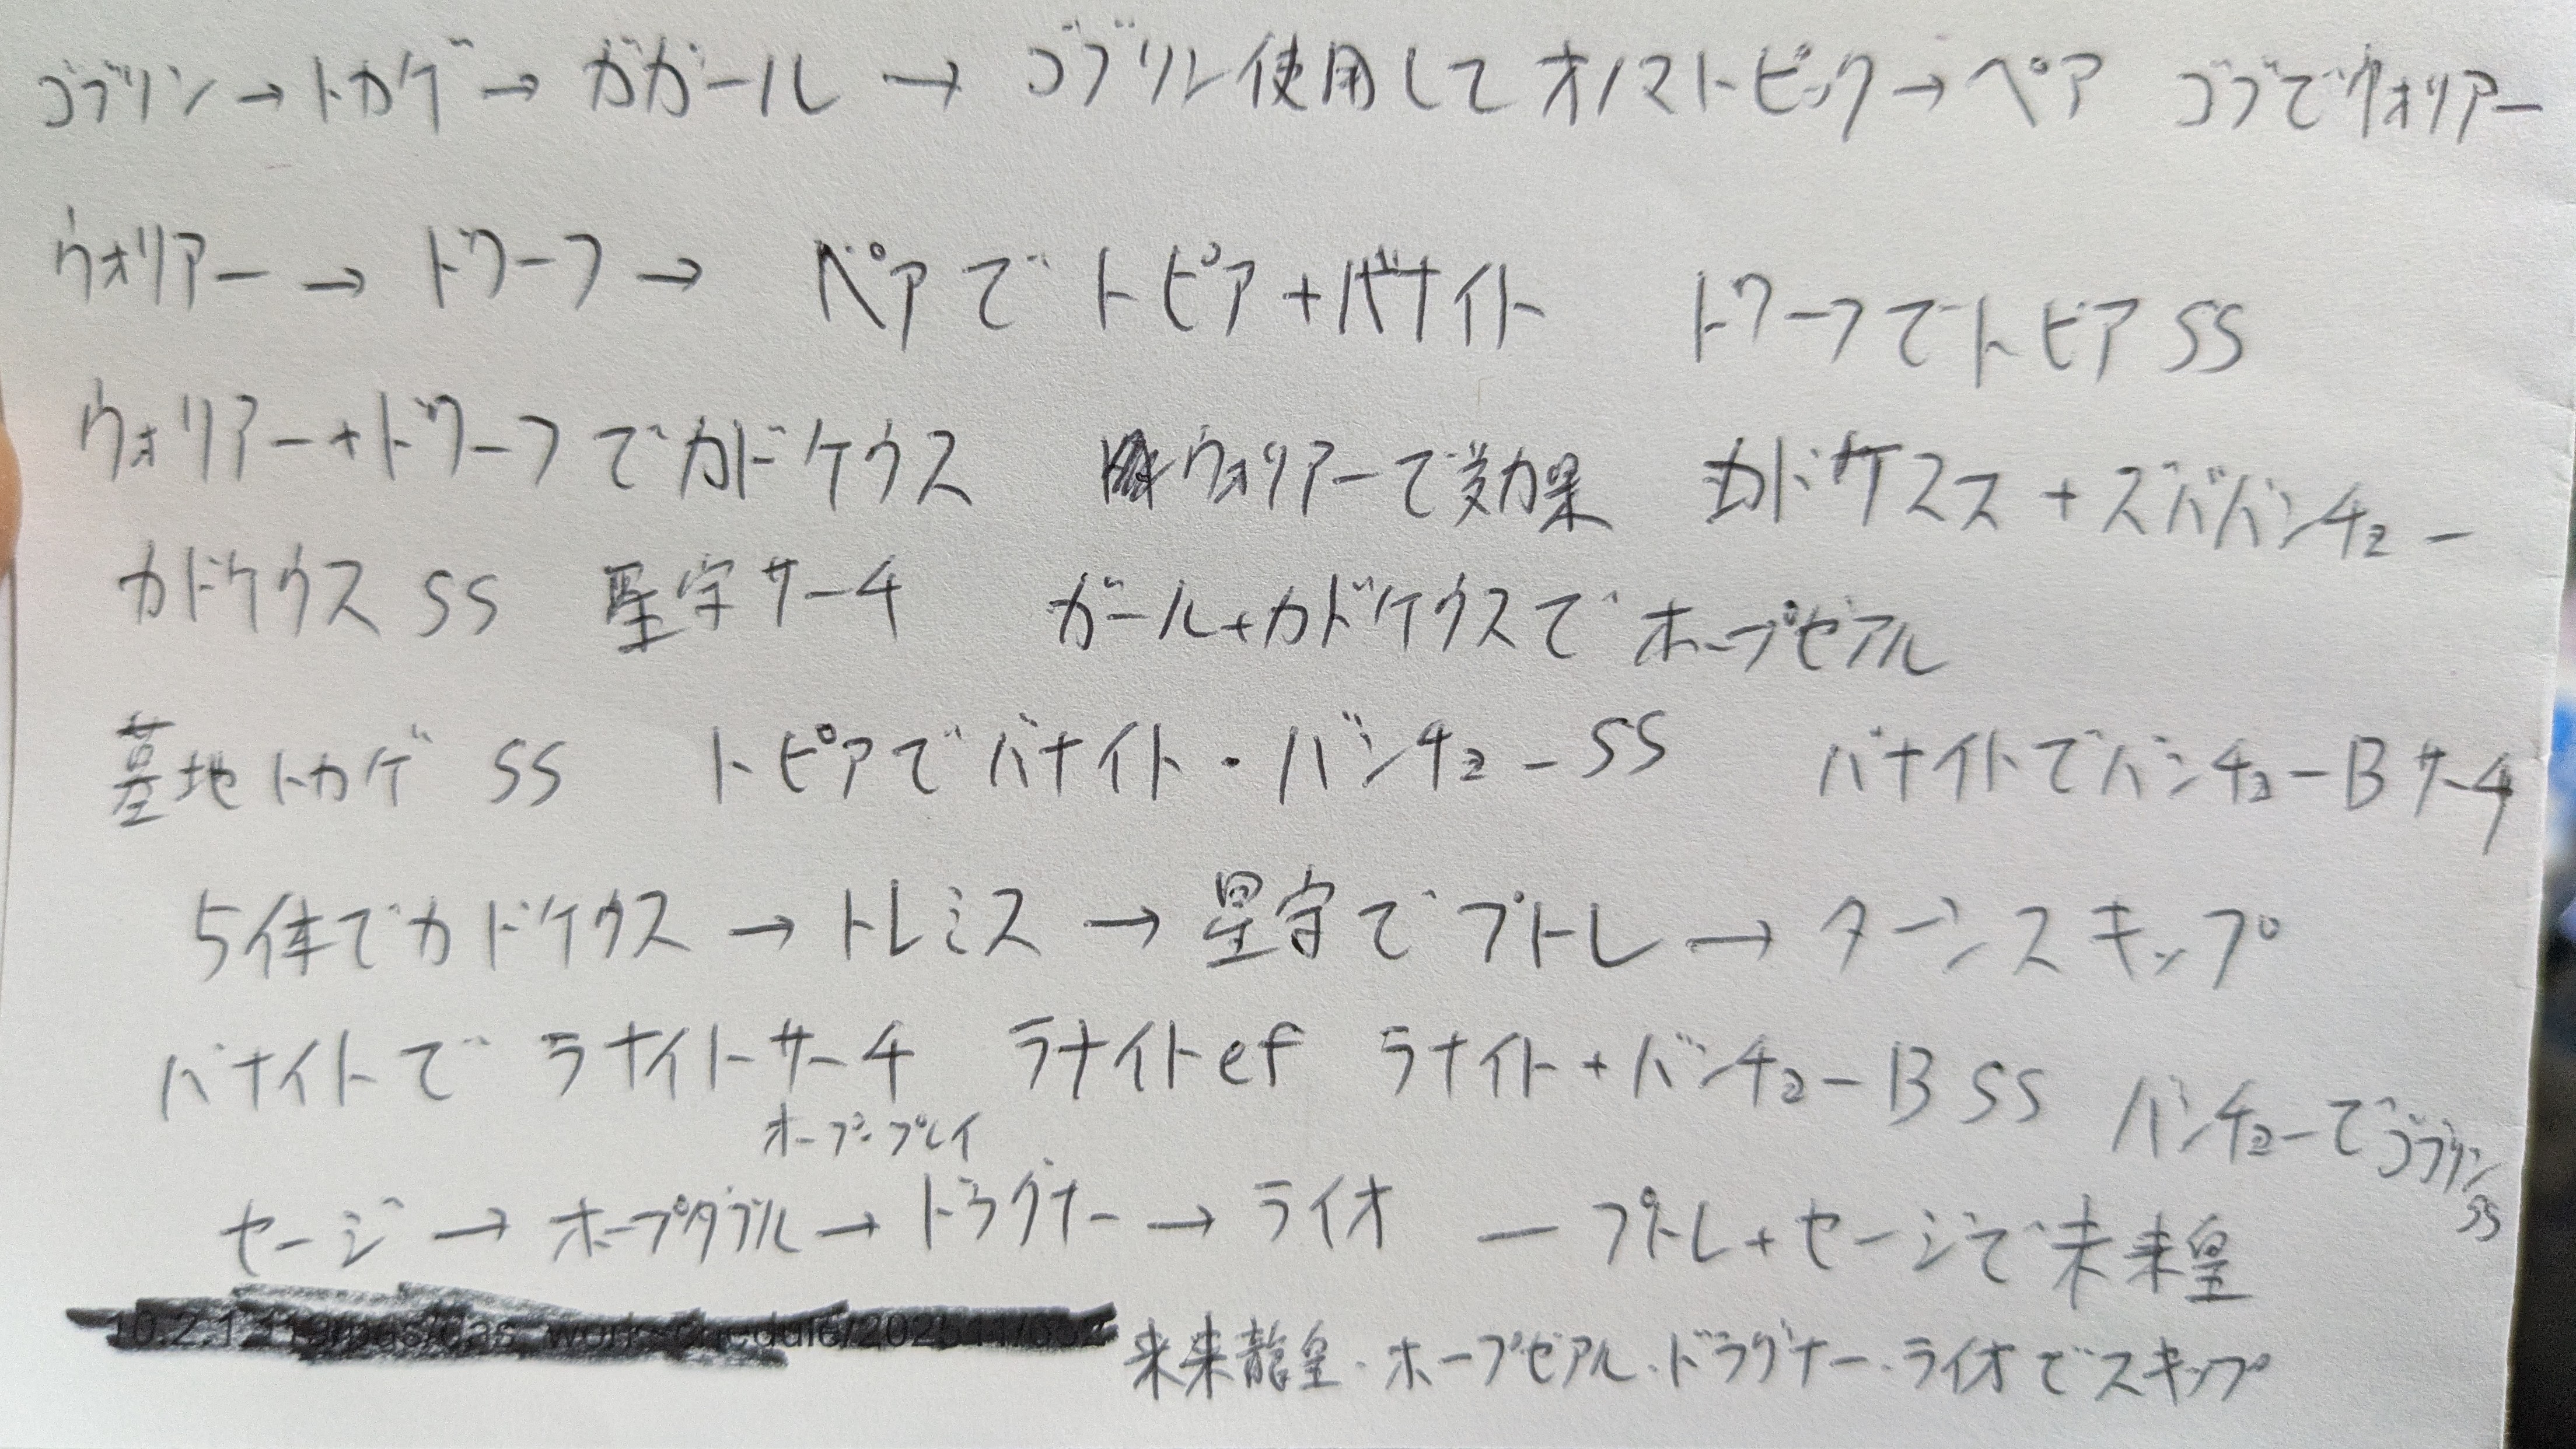 ゴブリン→トカゲ→ガガガール→ゴブリン使用してオノマトピック→ペア ゴブでウォリアー
ウォリアー→ドワーフ→ペアでトピア+バナイト ドワーフでトピアSS
ウォリアー+ドワーフでカドケウス ウォリアーで効果 カドケスス+ズババンチョー
カドケウスSS 星守サーチ ガール+カドケウスでホープゼアル
墓地トカゲSS トピアでバナイト・バンチョーSS バナイトでバンチョーBサーチ
5体でカドケウス→トレミス→星守でプトレ→ターンスキップ
バナイトでラナイトサーチ ラナイトef ラナイト+バンチョーBSS バンチョーでゴブリンSS
オーブンプレイ
セージ→ホープダブル→ドラグナー→ライオ ープトレ+セージで未来皇
未来龍皇・ホープゼアル・ドラグナー・ライオでスキップ